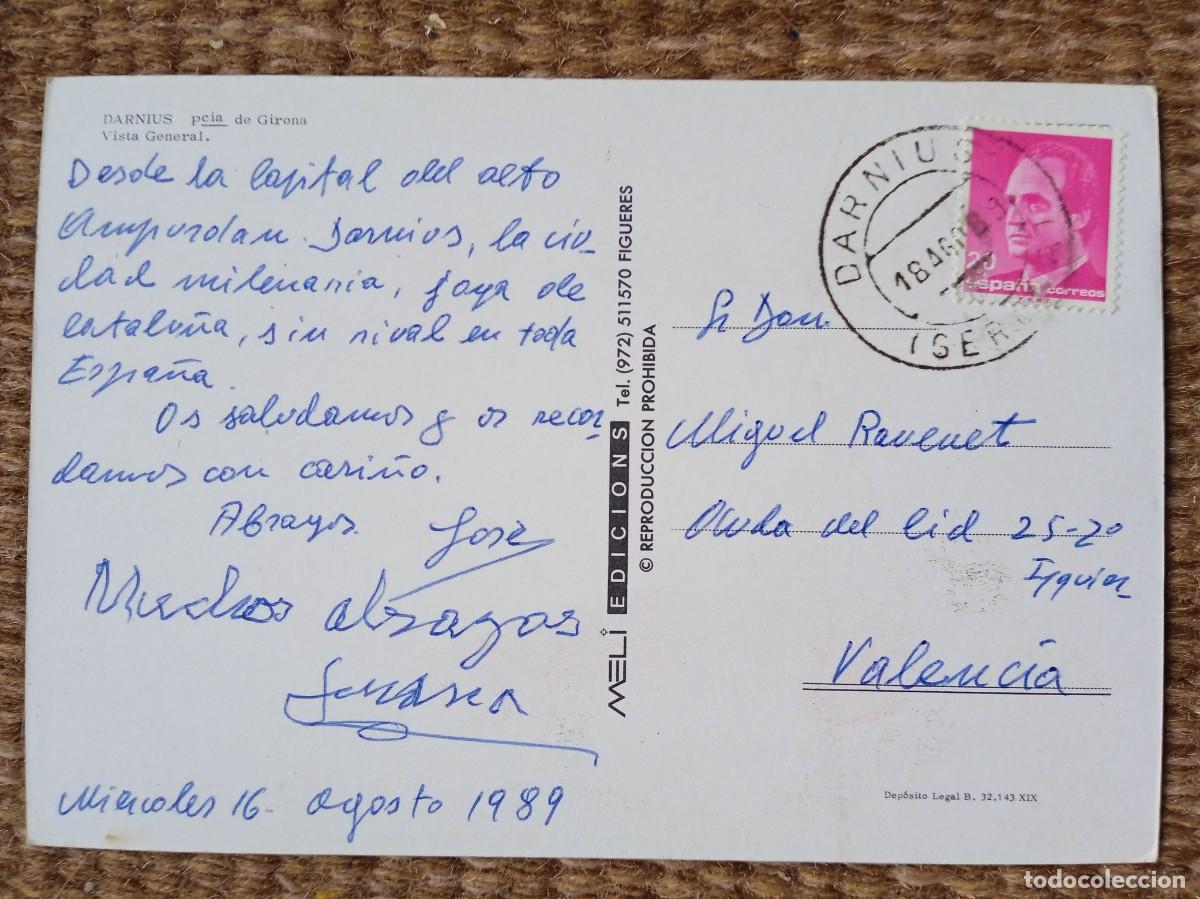 DARNIUS pcia de Girona
Vista General.
Desde la Capital del alto
Ampurdan Darnius, la ciu-
dad milenaria, joya de
Cataluña, sin rival en toda
España.
Os saludamos y os recor-
damos con cariño.
Abrazos. José
Muchos abrazos
Miércoles 16- agosto 1989
MELI EDICIONS Tel. (972) 511570 FIGUERES
© REPRODUCCION PROHIBIDA
DARNIUS
18 AGO 89
(GER
20
españa correos
F.N.M.T.
Sr Don.
Miguel Ravenet
Avda del Cid 25-20
Izquier
Valencia
Depósito Legal B. 32.143 XIX
todocoleccion